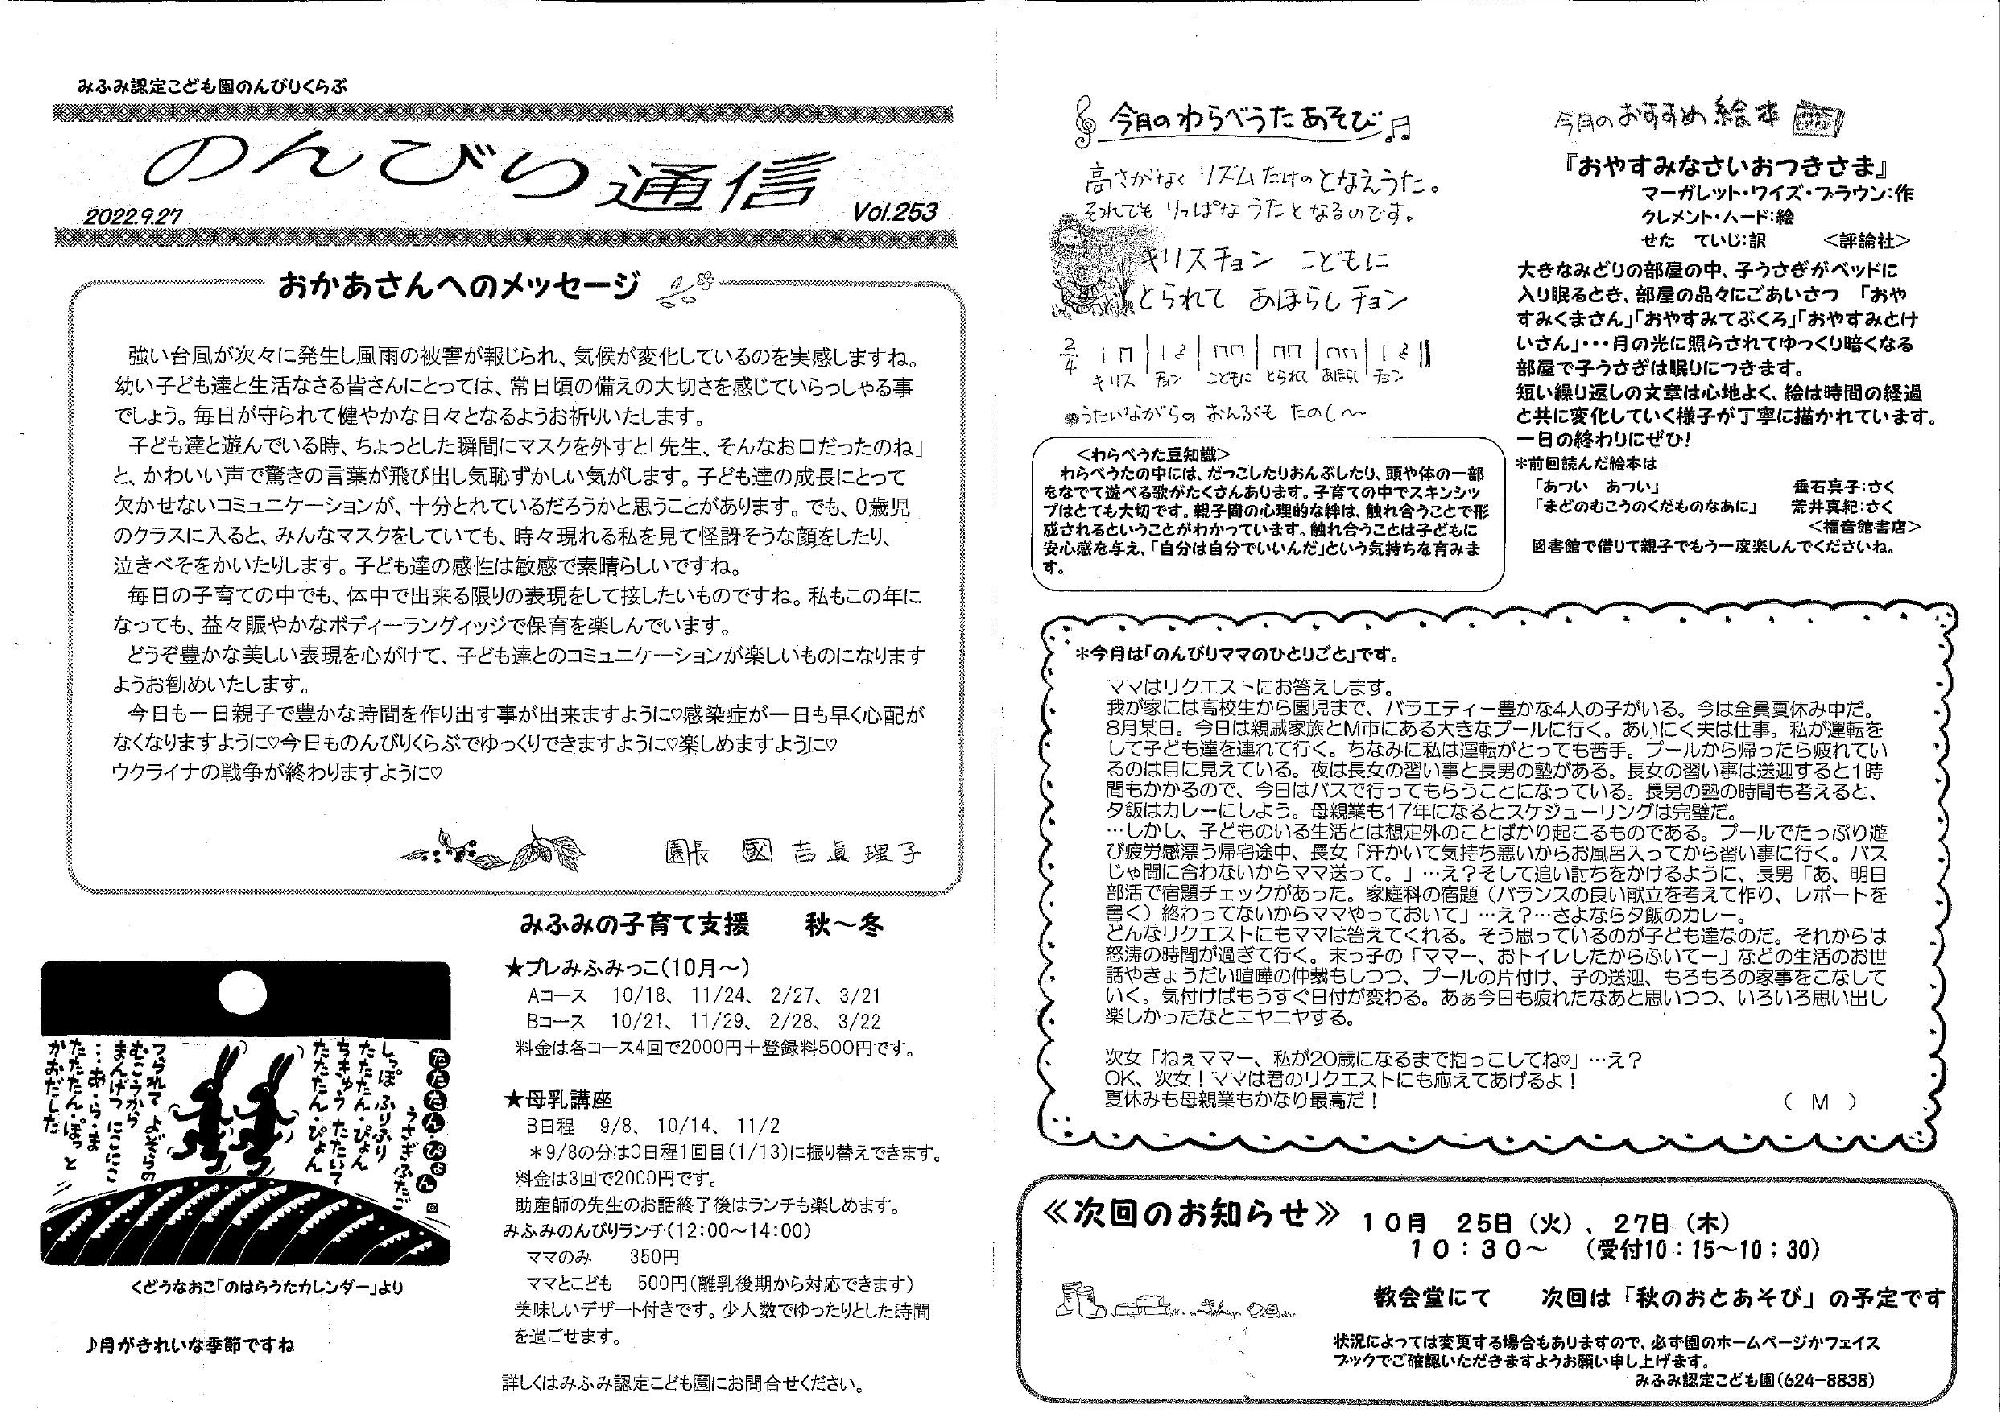 みふみ認定こども園のんびりくらぶ
のんびり通信
2022.9.27
Vol.253
おかあさんへのメッセージ
強い台風が次々に発生し風雨の被害が報じられ、気候が変化しているのを実感しますね。
幼い子ども達と生活なさる皆さんにとっては、常日頃の備えの大切さを感じていらっしゃる事
でしょう。毎日が守られて健やかな日々となるようお祈りいたします。
子ども達と遊んでいる時、ちょっとした瞬間にマスクを外すと「先生、そんなお口だったのね」
と、かわいい声で驚きの言葉が飛び出し気恥ずかしい気がします。子ども達の成長にとって
欠かせないコミュニケーションが、十分とれているだろうかと思うことがあります。でも、0歳児
のクラスに入ると、みんなマスクをしていても、時々現れる私を見て怪訝そうな顔をしたり、
泣きべそをかいたりします。子ども達の感性は敏感で素晴らしいですね。
毎日の子育ての中でも、体中で出来る限りの表現をして接したいものですね。私もこの年に
なっても、益々賑やかなボディーラングィッジで保育を楽しんでいます。
どうぞ豊かな美しい表現を心がけて、子ども達とのコミュニケーションが楽しいものになります
ようお勧めいたします。
今日も一日親子で豊かな時間を作り出す事が出来ますように♡感染症が一日も早く心配が
なくなりますように♡今日ものんびりくらぶでゆっくりできますように♡楽しめますように♡
ウクライナの戦争が終わりますように♡
園長 國吉眞理子
たたたん・ぴょん
うさぎふたご
しっぽ ふりふり
たたたん・ぴょん
ちきゅう たたいて
たたたん・ぴょん
つられて よぞらの
むこうから
まんげつ にこにこ
…お・ら・ま
たたたん・ぽっ と
かおだした
くどうなおこ「のはらうたカレンダー」より
♪月がきれいな季節ですね
みふみの子育て支援 秋～冬
★プレみふみっこ(10月～)
Aコース 10/18、 11/24、 2/27、 3/21
Bコース 10/21、 11/29、 2/28、 3/22
料金は各コース4回で2000円＋登録料500円です。
★母乳講座
B日程 9/8、 10/14、 11/2
＊9/8の分はC日程1回目(1/13)に振り替えできます。
料金は3回で2000円です。
助産師の先生のお話終了後はランチも楽しめます。
みふみのんびりランチ(12:00～14:00)
ママのみ 350円
ママとこども 500円(離乳後期から対応できます)
美味しいデザート付きです。少人数でゆったりとした時間
を過ごせます。
詳しくはみふみ認定こども園にお問合せください。
今月のわらべうたあそび
高さがなく リズムだけのとなえうた。
それでも りっぱなうたとなるのです。
キリスチョン こどもに
とられて あほらしチョン
2/4
キリス チョン こどもに とられて あほらし チョン
●うたいながらの おんぶも たのし～
<わらべうた豆知識>
わらべうたの中には、だっこしたりおんぶしたり、頭や体の一部
をなでて遊べる歌がたくさんあります。子育ての中でスキンシッ
プはとても大切です。親子間の心理的な絆は、触れ合うことで形
成されるということがわかっています。触れ合うことは子どもに
安心感を与え、「自分は自分でいいんだ」という気持ちな育みま
す。
今月のおすすめ絵本
『おやすみなさいおつきさま』
マーガレット・ワイズ・ブラウン:作
クレメント・ハード:絵
せた ていじ:訳 <評論社>
大きなみどりの部屋の中、子うさぎがベッドに
入り眠るとき、部屋の品々にごあいさつ 「おや
すみくまさん」「おやすみてぶくろ」「おやすみとけ
いさん」・・・月の光に照らされてゆっくり暗くなる
部屋で子うさぎは眠りにつきます。
短い繰り返しの文章は心地よく、絵は時間の経過
と共に変化していく様子が丁寧に描かれています。
一日の終わりにぜひ!
*前回読んだ絵本は
「あつい あつい」 垂石真子:さく
「まどのむこうのくだものなあに」 荒井真紀:さく
<福音館書店>
図書館で借りて親子でもう一度楽しんでくださいね。
*今月は「のんびりママのひとりごと」です。
ママはリクエストにお答えします。
我が家には高校生から園児まで、バラエティー豊かな4人の子がいる。今は全員夏休み中だ。
8月某日。今日は親戚家族とM市にある大きなプールに行く。あいにく夫は仕事。私が運転を
して子ども達を連れて行く。ちなみに私は運転がとっても苦手。プールから帰ったら疲れてい
るのは目に見えている。夜は長女の習い事と長男の塾がある。長女の習い事は送迎すると1時
間もかかるので、今日はバスで行ってもらうことになっている。長男の塾の時間も考えると、
夕飯はカレーにしよう。母親業も17年になるとスケジューリングは完璧だ。
…しかし、子どものいる生活とは想定外のことばかり起こるものである。プールでたっぷり遊
び疲労感漂う帰宅途中、長女「汗かいて気持ち悪いからお風呂入ってから習い事に行く。バス
じゃ間に合わないからママ送って。」…え？そして追い討ちをかけるように、長男「あ、明日
部活で宿題チェックがあった。家庭科の宿題（バランスの良い献立を考えて作り、レポートを
書く）終わってないからママやっておいて」…え？…さよなら夕飯のカレー。
どんなリクエストにもママは答えてくれる。そう思っているのが子ども達なのだ。それからは
怒涛の時間が過ぎて行く。末っ子の「ママー、おトイレしたからふいてー」などの生活のお世
話やきょうだい喧嘩の仲裁もしつつ、プールの片付け、子の送迎、もろもろの家事をこなして
いく。気付けばもうすぐ日付が変わる。あぁ今日も疲れたなあと思いつつ、いろいろ思い出し
楽しかったなとニヤニヤする。
次女「ねぇママー、私が20歳になるまで抱っこしてね♡」…え？
OK、次女！ママは君のリクエストにも応えてあげるよ！
夏休みも母親業もかなり最高だ！
（ M ）
≪次回のお知らせ≫ 10月 25日（火）、27日（木）
10：30～ （受付10：15～10；30）
教会堂にて 次回は「秋のおとあそび」の予定です
状況によっては変更する場合もありますので、必ず園のホームページかフェイス
ブックでご確認いただきますようお願い申し上げます。
みふみ認定こども園(624-8838)